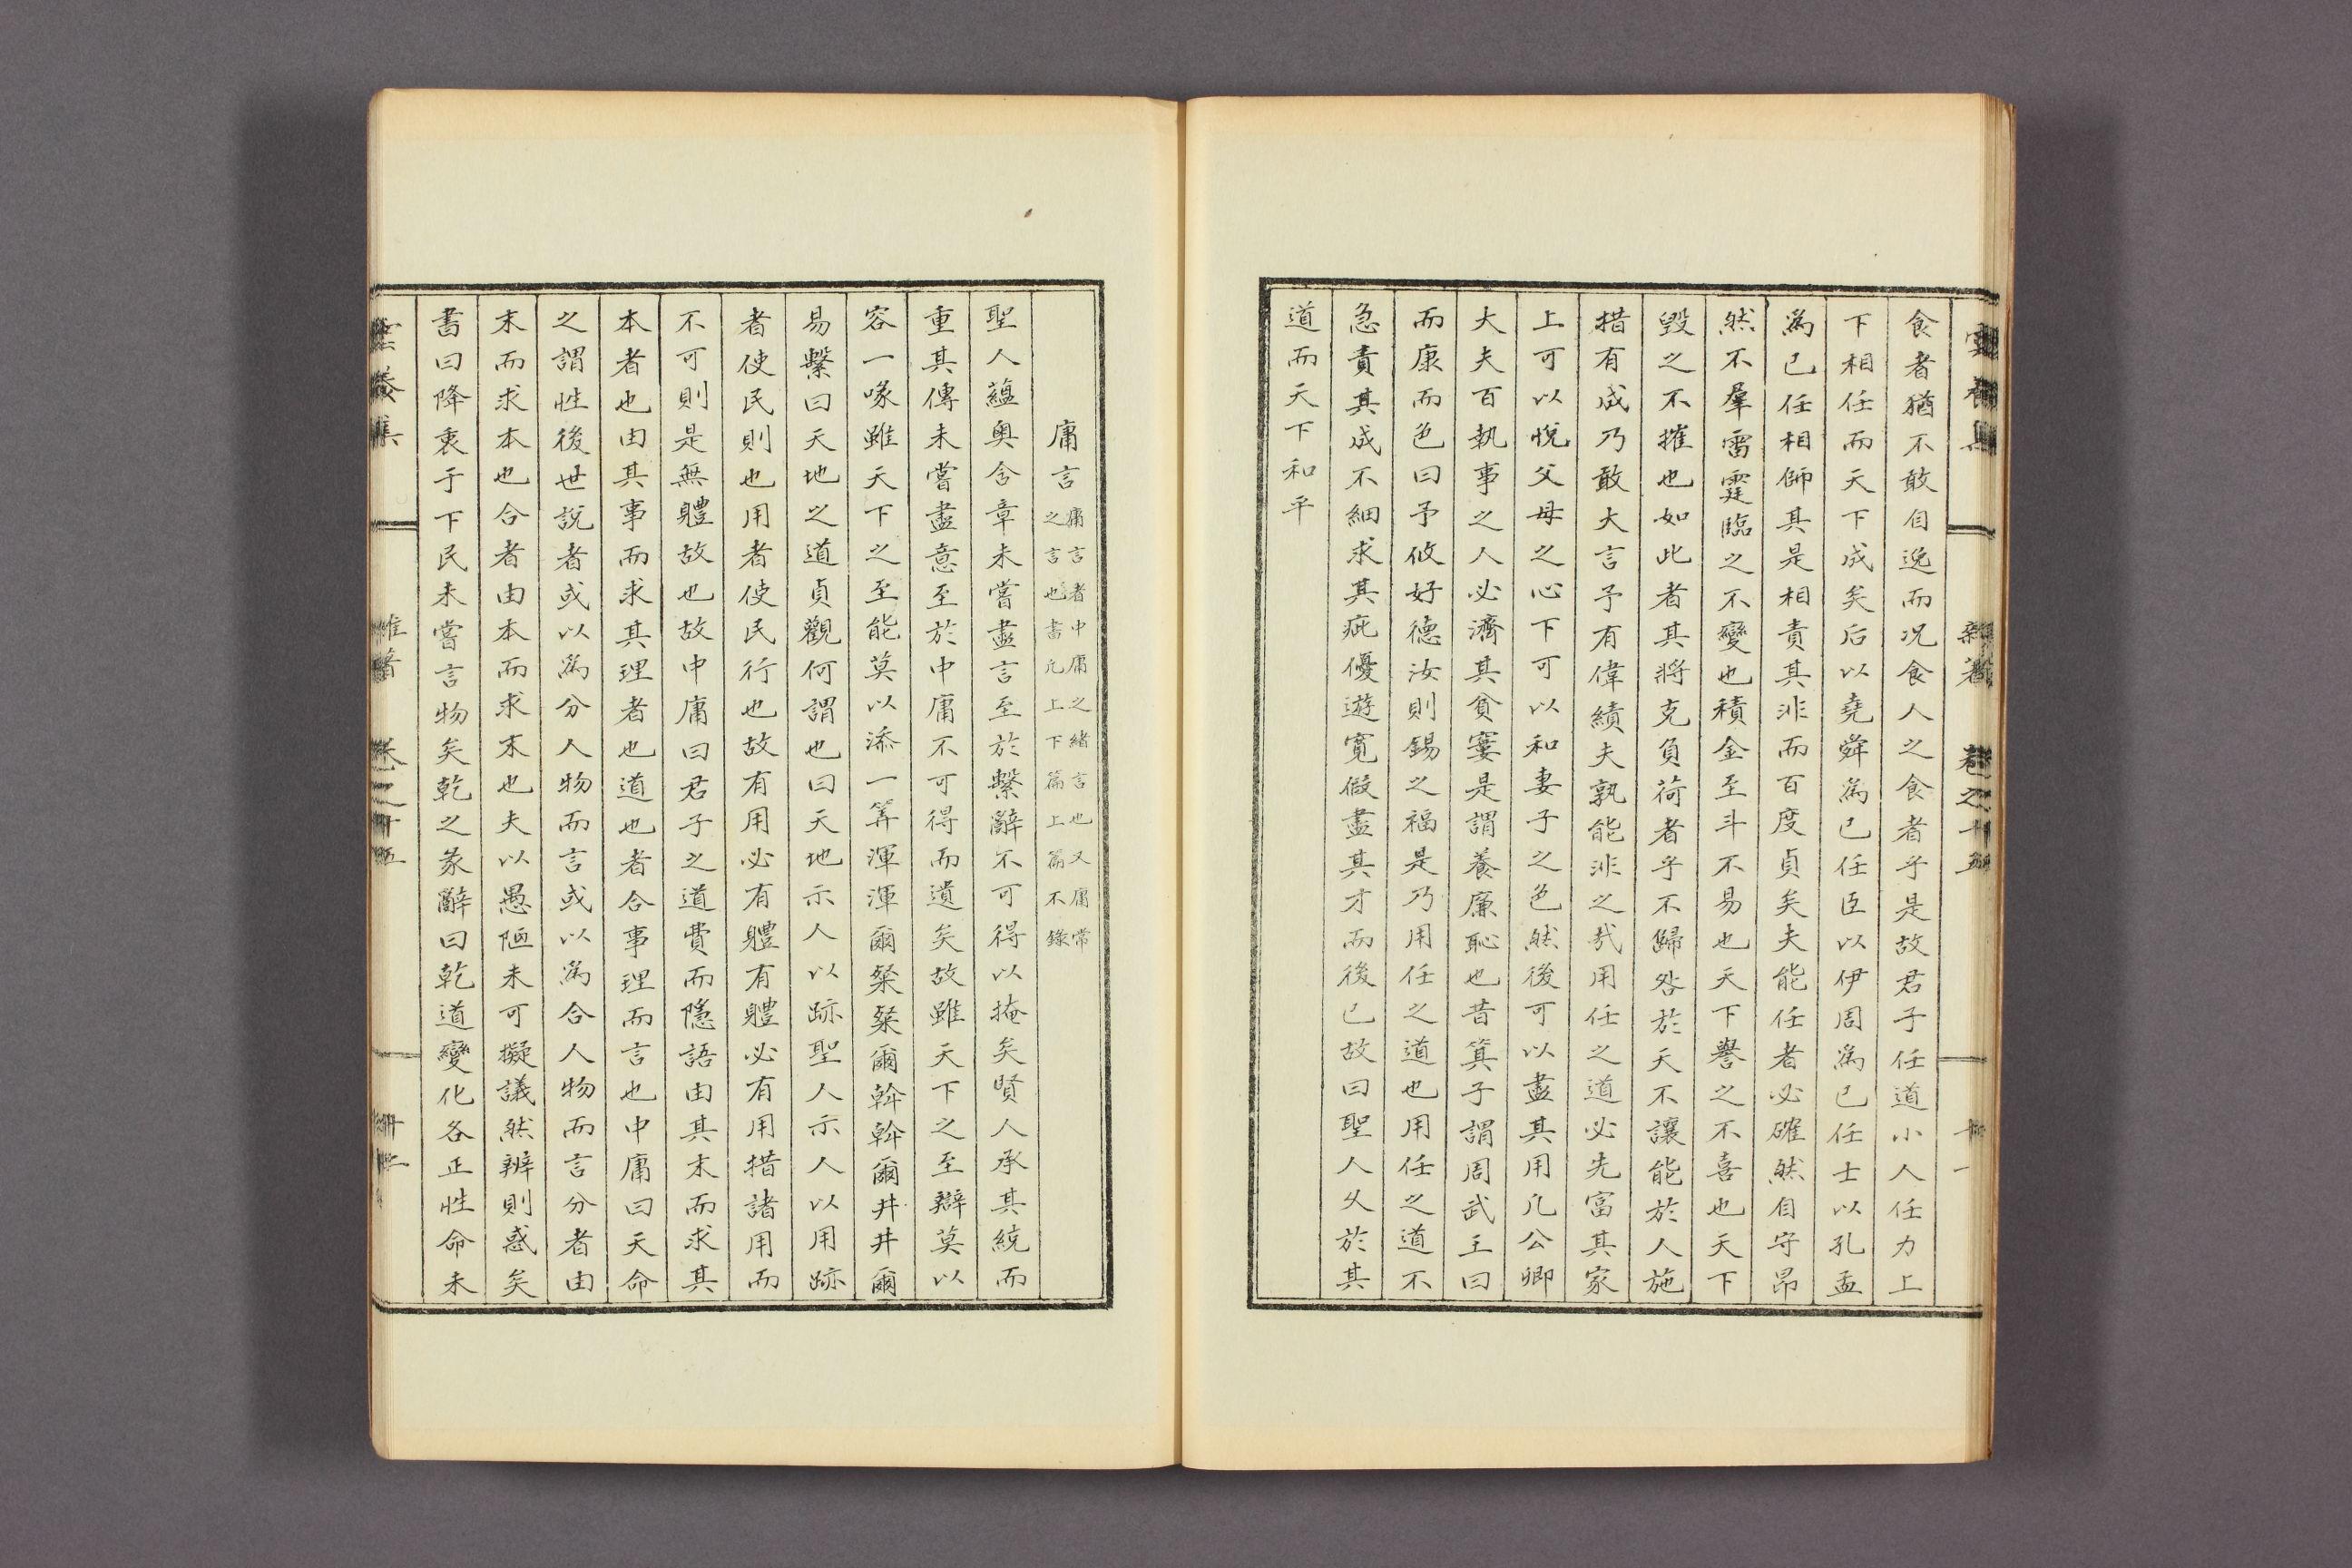 食者猶不敢自逸而况食人之食者乎是故君子任道小人任力上
下相任而天下成矣后以堯舜為已任臣以伊周為已任士以孔孟
為已任相師其是相責其非而百度貞矣夫能任者必確然自守昂
然不羣雷霆臨之不變也積金至斗不易也天下譽之不喜也天下
毀之不摧也如此者其將克負荷者乎不歸咎於天不讓能於人施
措有成乃敢大言予有偉績夫孰能非之哉用任之道必先富其家
上可以悅父母之心下可以和妻子之色然後可以盡其用凡公卿
大夫百執事之人必濟其貧窶是謂養廉恥也昔箕子謂周武王曰
而康而色曰予攸好德汝則錫之福是乃用任之道也用任之道不
急責其成不細求其疵優遊寬假盡其才而後已故曰聖人久於其
道而天下和平
庸言
庸言者中庸之緒言也又庸常
之言也書凡上下篇上篇不錄
聖人蘊奧含章未嘗盡言至於繫辭不可得以掩矣賢人承其統而
重其傳未嘗盡意至於中庸不可得而遺矣故雖天下之至辯莫以
容一喙雖天下之至能莫以添一筭渾渾爾粲粲爾斡斡爾井井爾
易繫曰天地之道貞觀何謂也曰天地示人以跡聖人示人以用跡
者使民則也用者使民行也故有用必有體有體必有用措諸用而
不可則是無體故也故中庸曰君子之道費而隱語由其末而求其
本者也由其事而求其理者也道也者合事理而言也中庸曰天命
之謂性後世說者或以為分人物而言或以為合人物而言分者由
末而求本也合者由本而求末也夫以愚陋未可擬議然辨則惑矣
書曰降衷于下民未嘗言物矣乾之彖辭曰乾道變化各正性命未